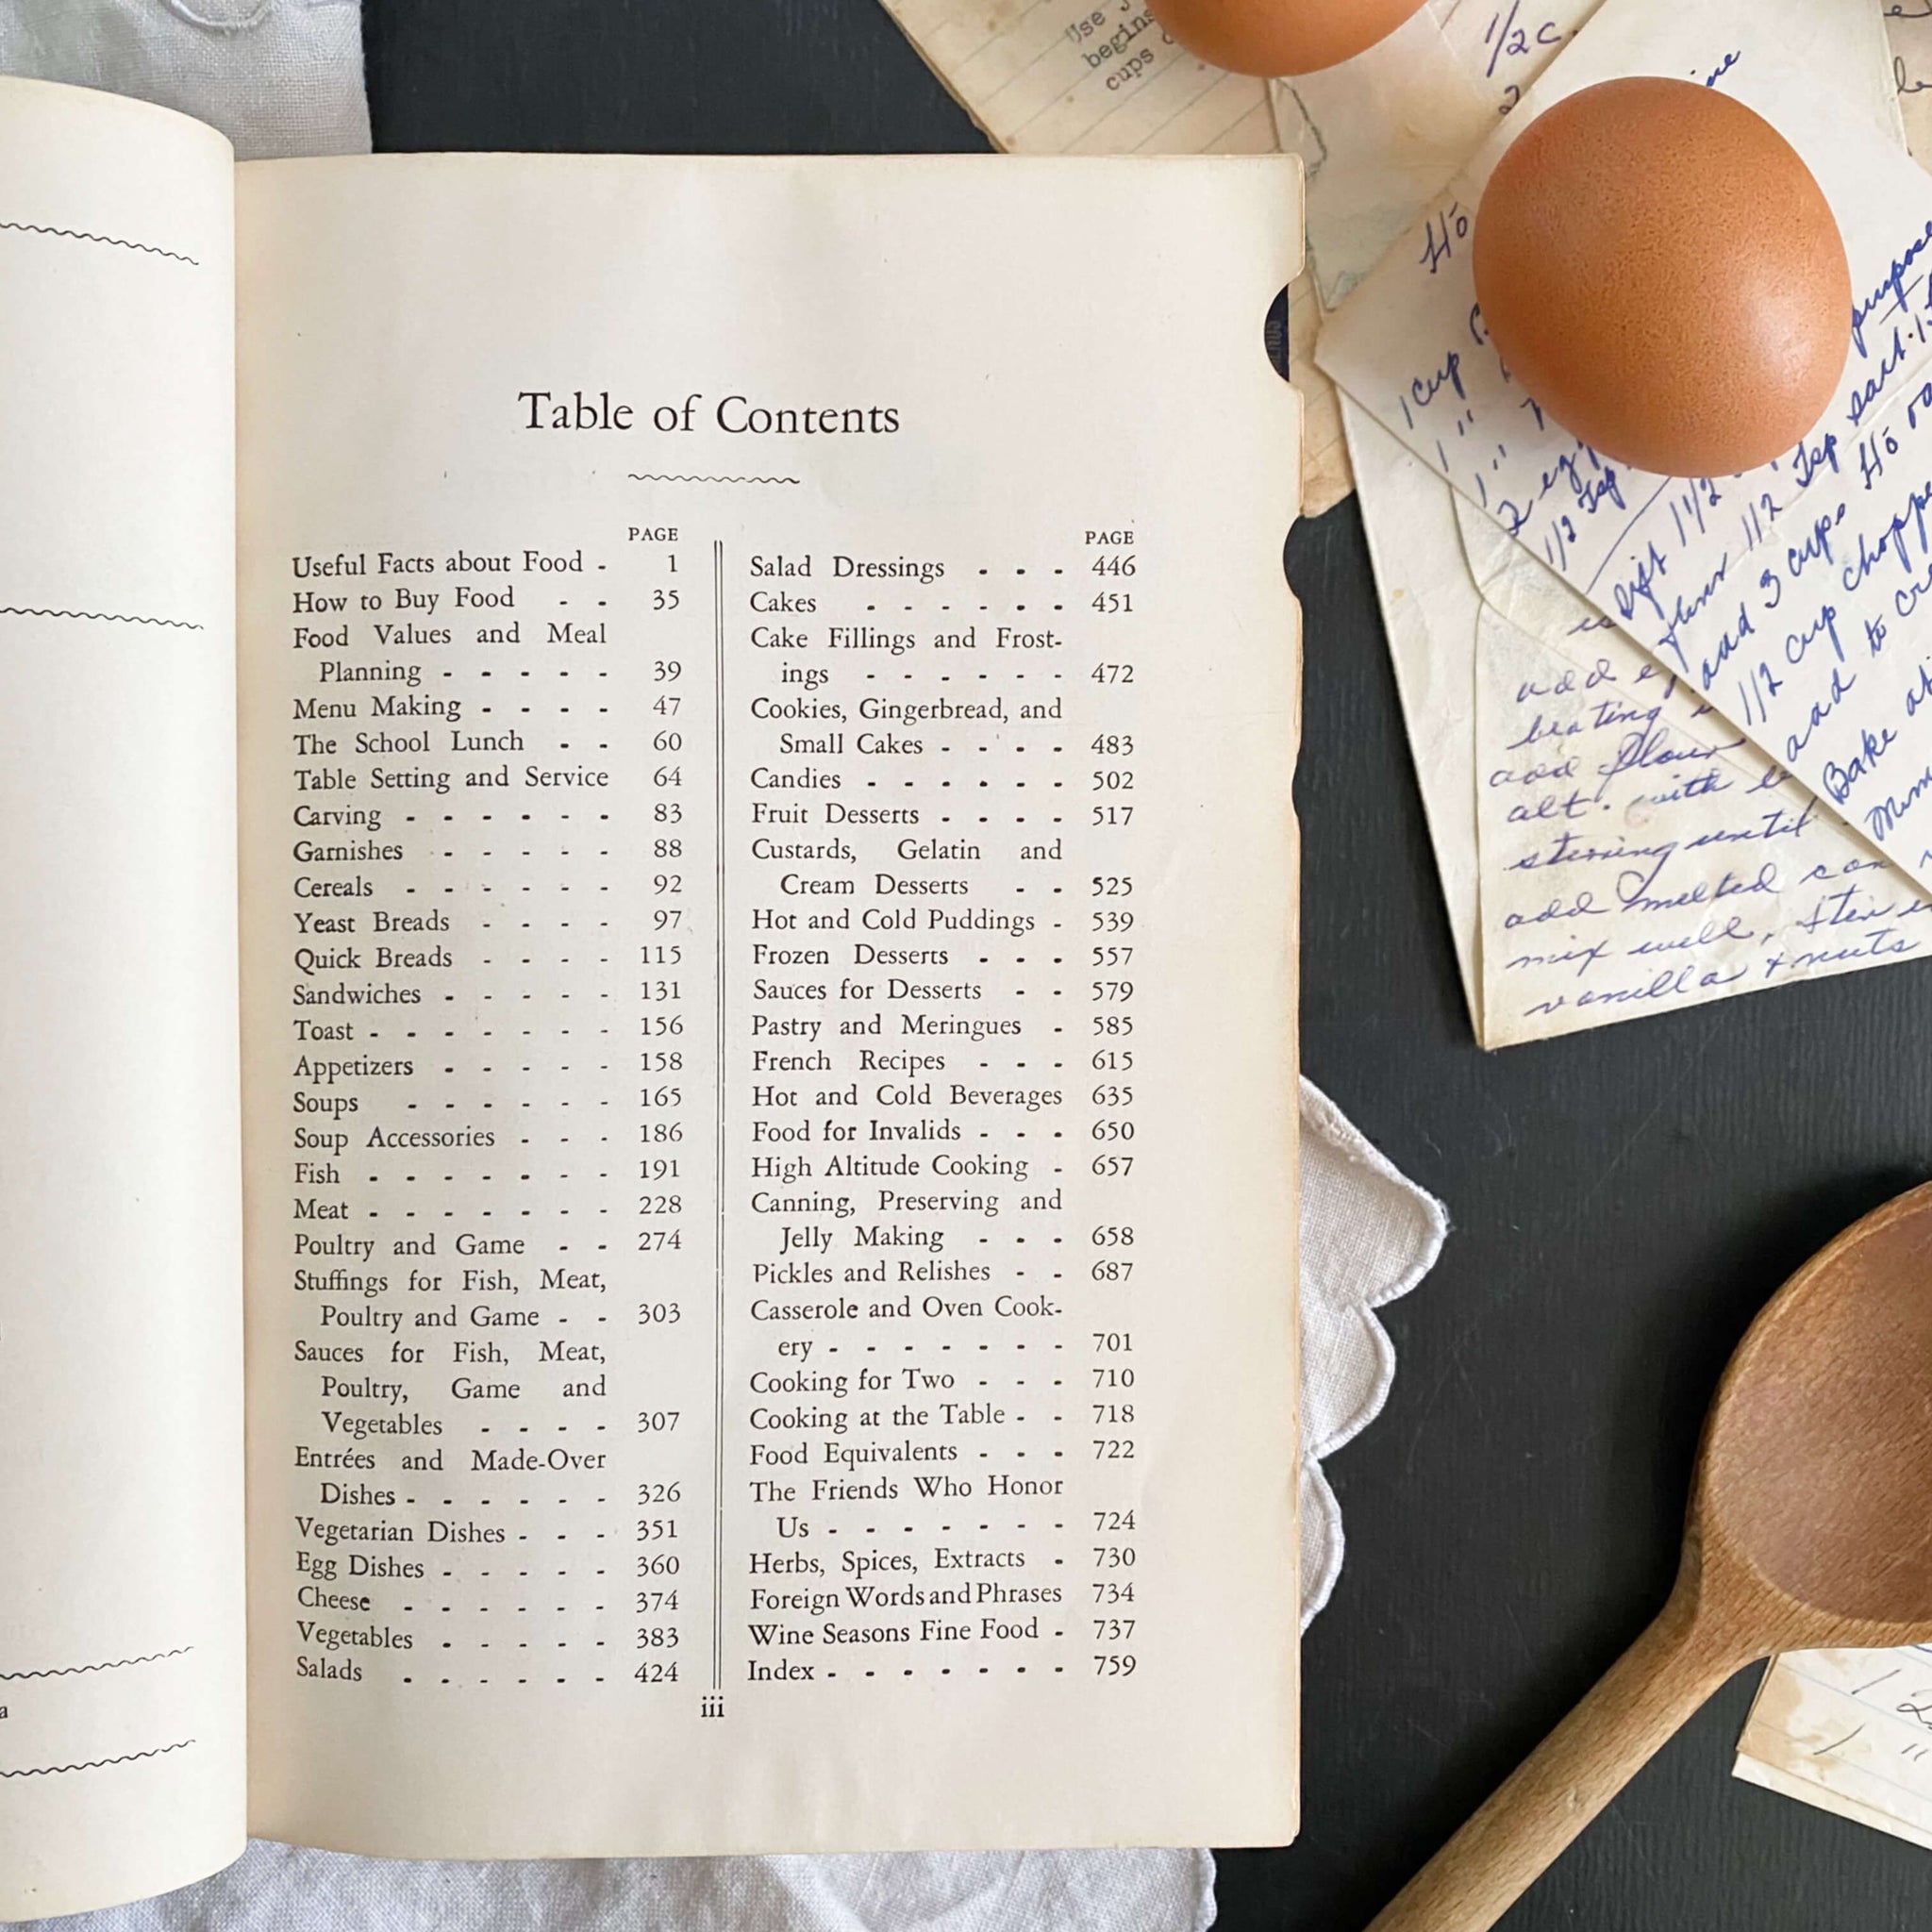 Table of Contents
PAGE
Useful Facts about Food - 1
How to Buy Food - - 35
Food Values and Meal
Planning - - - - - 39
Menu Making - - - - 47
The School Lunch - - 60
Table Setting and Service 64
Carving - - - - - - 83
Garnishes - - - - - 88
Cereals - - - - - - 92
Yeast Breads - - - - 97
Quick Breads - - - - 115
Sandwiches - - - - - 131
Toast - - - - - - - 156
Appetizers - - - - - 158
Soups - - - - - - 165
Soup Accessories - - - 186
Fish - - - - - - - 191
Meat - - - - - - - 228
Poultry and Game - - 274
Stuffings for Fish, Meat,
Poultry and Game - - 303
Sauces for Fish, Meat,
Poultry, Game and
Vegetables - - - - 307
Entrées and Made-Over
Dishes - - - - - - 326
Vegetarian Dishes - - - 351
Egg Dishes - - - - - 360
Cheese - - - - - - 374
Vegetables - - - - - 383
Salads - - - - - - 424
PAGE
Salad Dressings - - - 446
Cakes - - - - - - 451
Cake Fillings and Frost-
ings - - - - - - 472
Cookies, Gingerbread, and
Small Cakes - - - - 483
Candies - - - - - - 502
Fruit Desserts - - - - 517
Custards, Gelatin and
Cream Desserts - - 525
Hot and Cold Puddings - 539
Frozen Desserts - - - 557
Sauces for Desserts - - 579
Pastry and Meringues - 585
French Recipes - - - 615
Hot and Cold Beverages 635
Food for Invalids - - - 650
High Altitude Cooking - 657
Canning, Preserving and
Jelly Making - - - 658
Pickles and Relishes - - 687
Casserole and Oven Cook-
ery - - - - - - - 701
Cooking for Two - - - 710
Cooking at the Table - - 718
Food Equivalents - - - 722
The Friends Who Honor
Us - - - - - - - 724
Herbs, Spices, Extracts - 730
Foreign Words and Phrases 734
Wine Seasons Fine Food - 737
Index - - - - - - - 759
iii
a
Use
begins
cups
1/2 C.
2
1 cup
1 "
1 "
2
1/2 Tsp
Sift 1 1/2
1/2 Tsp
add 3 cups
1/2 cup
add to
Bake
purpose
add
beating
add flour
alt. with
stirring until
add melted
mix well,
vanilla + nuts
1
1